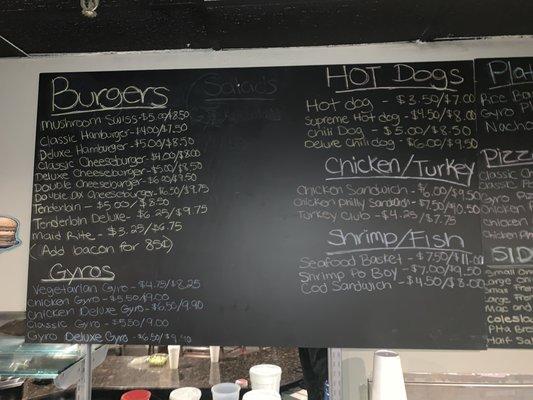 Burgers
Mushroom Swiss - $5.00/$8.50
Classic Hamburger - $4.00/$7.50
Deluxe Hamburger - $5.00/$8.50
Classic Cheeseburger - $4.00/$8.00
Deluxe Cheeseburger - $5.00/$8.50
Double Cheeseburger - $6.00/$9.50
Double DX Cheeseburger - $6.50/$9.75
Tenderloin - $5.00/$8.50
Tenderloin Deluxe - $6.25/$9.75
Maid Rite - $3.25/$6.75
(Add bacon for 85¢)
Gyros
Vegetarian Gyro - $4.75/$8.25
Chicken Gyro - $5.50/9.00
Chicken Deluxe Gyro - $6.50/9.90
Classic Gyro - $5.50/9.00
Gyro Deluxe Gyro - $6.50/$9.90
Salads
Hot Dogs
Hot dog - $3.50/$7.00
Supreme Hot dog - $4.50/$8.00
Chili Dog - $5.00/$8.50
Deluxe Chili dog - $6.00/$9.50
Chicken/Turkey
Chicken Sandwich - $6.00/$9.50
Chicken Philly Sandwich - $7.50/$10.50
Turkey Club - $4.25/$7.75
Shrimp/Fish
Seafood Basket - $7.50/$11.00
Shrimp Po Boy - $7.00/$9.50
Cod Sandwich - $4.50/$8.00
Plat
Rice Ba
Gyro Pl
Nacho
Pizz
Classic Ch
Classic Pe
Gyro Piz
Chicken
Chicken
Chicken Ph
Sid
Small On
Large On
Small Fre
Large Fre
Mac and
Coleslaw
Pita Bre
Half Sal